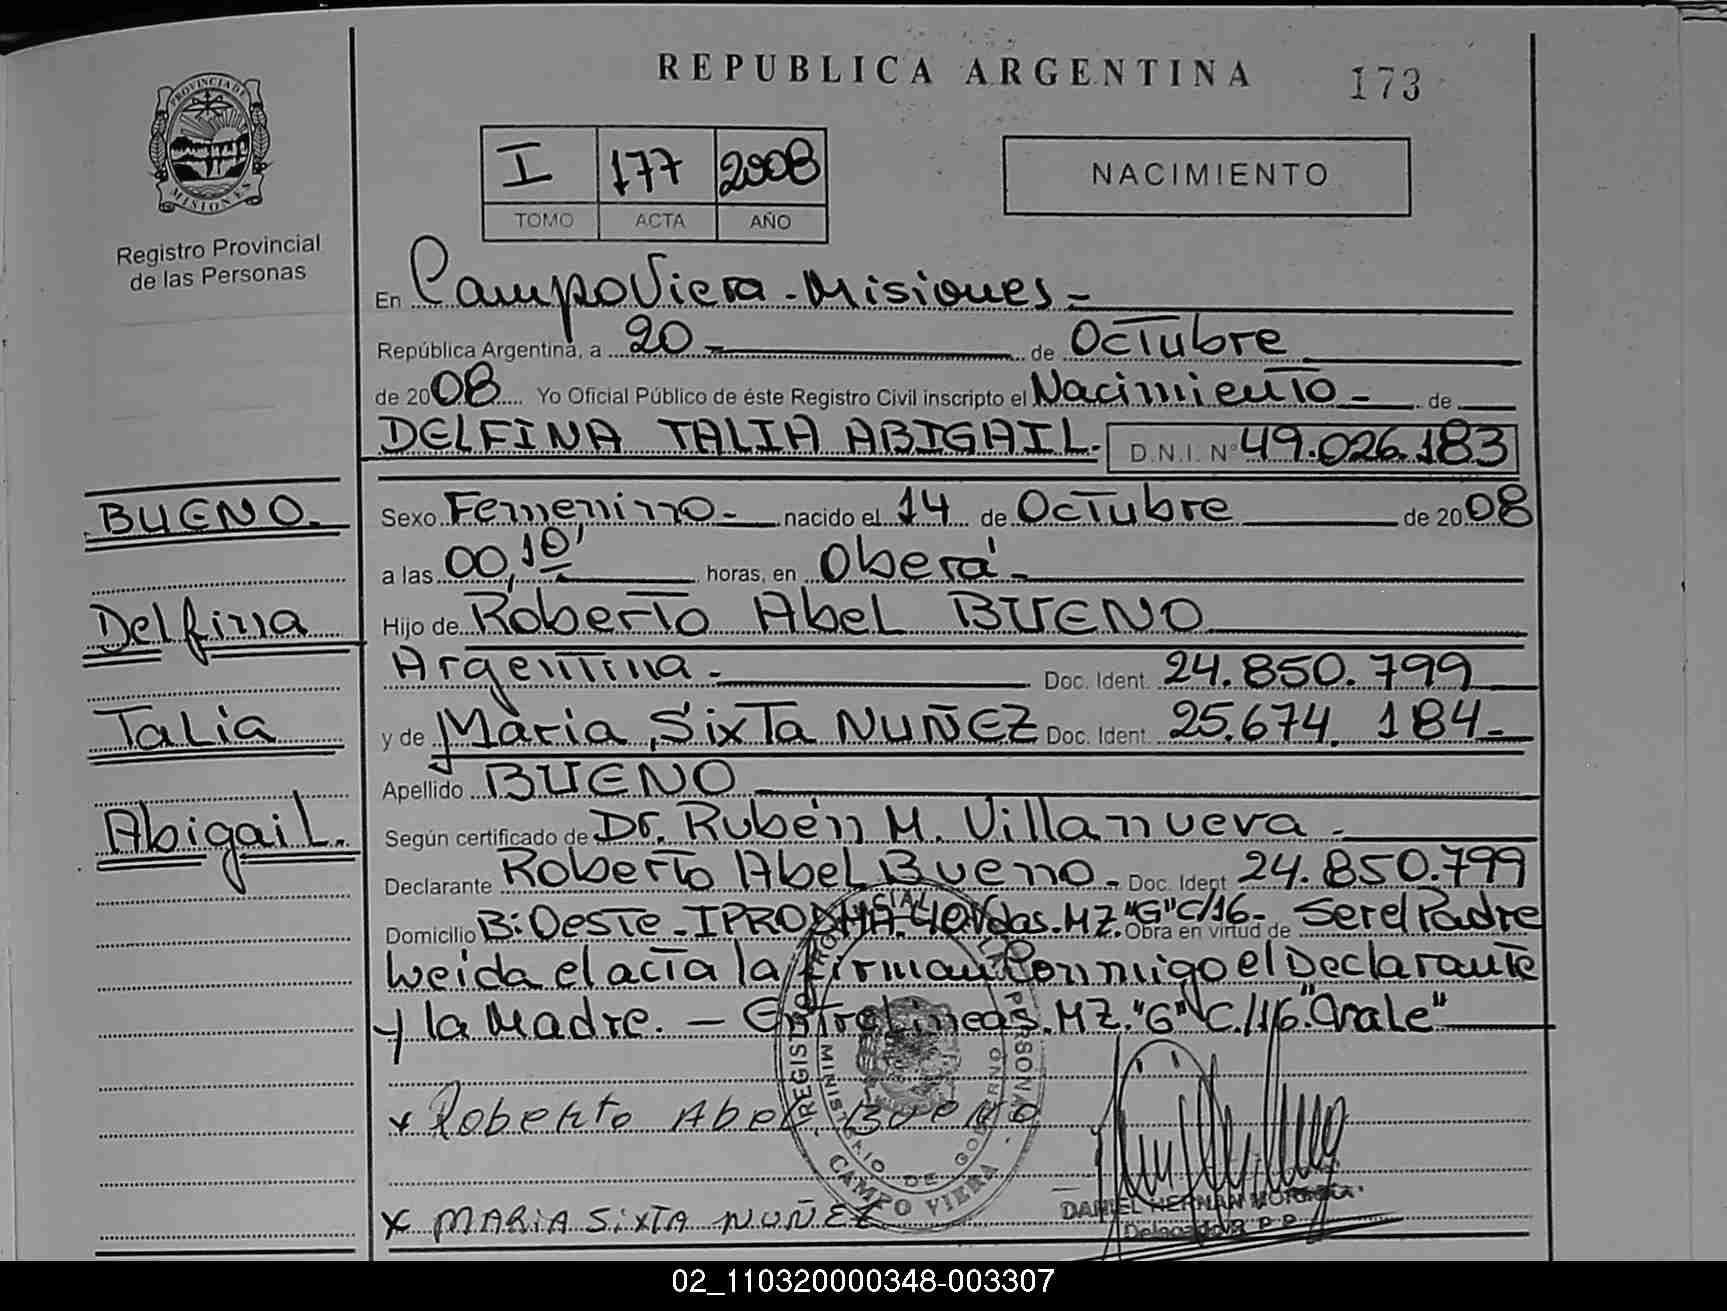 REPUBLICA ARGENTINA
173
PROVINCIA DE
MISIONES
Registro Provincial
de las Personas
I 177 2008
TOMO ACTA AÑO
NACIMIENTO
En Campo Viera - Misiones -
República Argentina, a 20 - de Octubre
de 2008 Yo Oficial Público de éste Registro Civil inscripto el Nacimiento - de
DELFINA TALIA ABIGAIL. D.N.I. N° 49.026.183
BUENO.
Delfina
Talia
Abigail.
Sexo Femenino - nacido el 14 de Octubre de 2008
a las 00,10' horas, en Oberá -
Hijo de Roberto Abel BUENO
Argentina - Doc. Ident. 24.850.799
y de Maria Sixta NUÑEZ Doc. Ident. 25.674.184 -
Apellido BUENO
Según certificado de Dr. Rubén M. Villanueva -
Declarante Roberto Abel Bueno - Doc. Ident 24.850.799
Domicilio B: Oeste - IPRODHA. 40 Vdas. MZ. "G" C/16 - Obra en virtud de Ser el Padre
Leida el acta la firman Conmigo el Declarante
y la Madre. - Entrelineas. MZ. "G" C./16. "Vale"
x Roberto Abel Bueno
x MARIA SIXTA NUÑEZ
REGISTRO PROVINCIAL DE LAS PERSONAS
MINISTERIO DE GOBIERNO
CAMPO VIERA
DANIEL HERNAN
Delegado R.P.P.
02_110320000348-003307